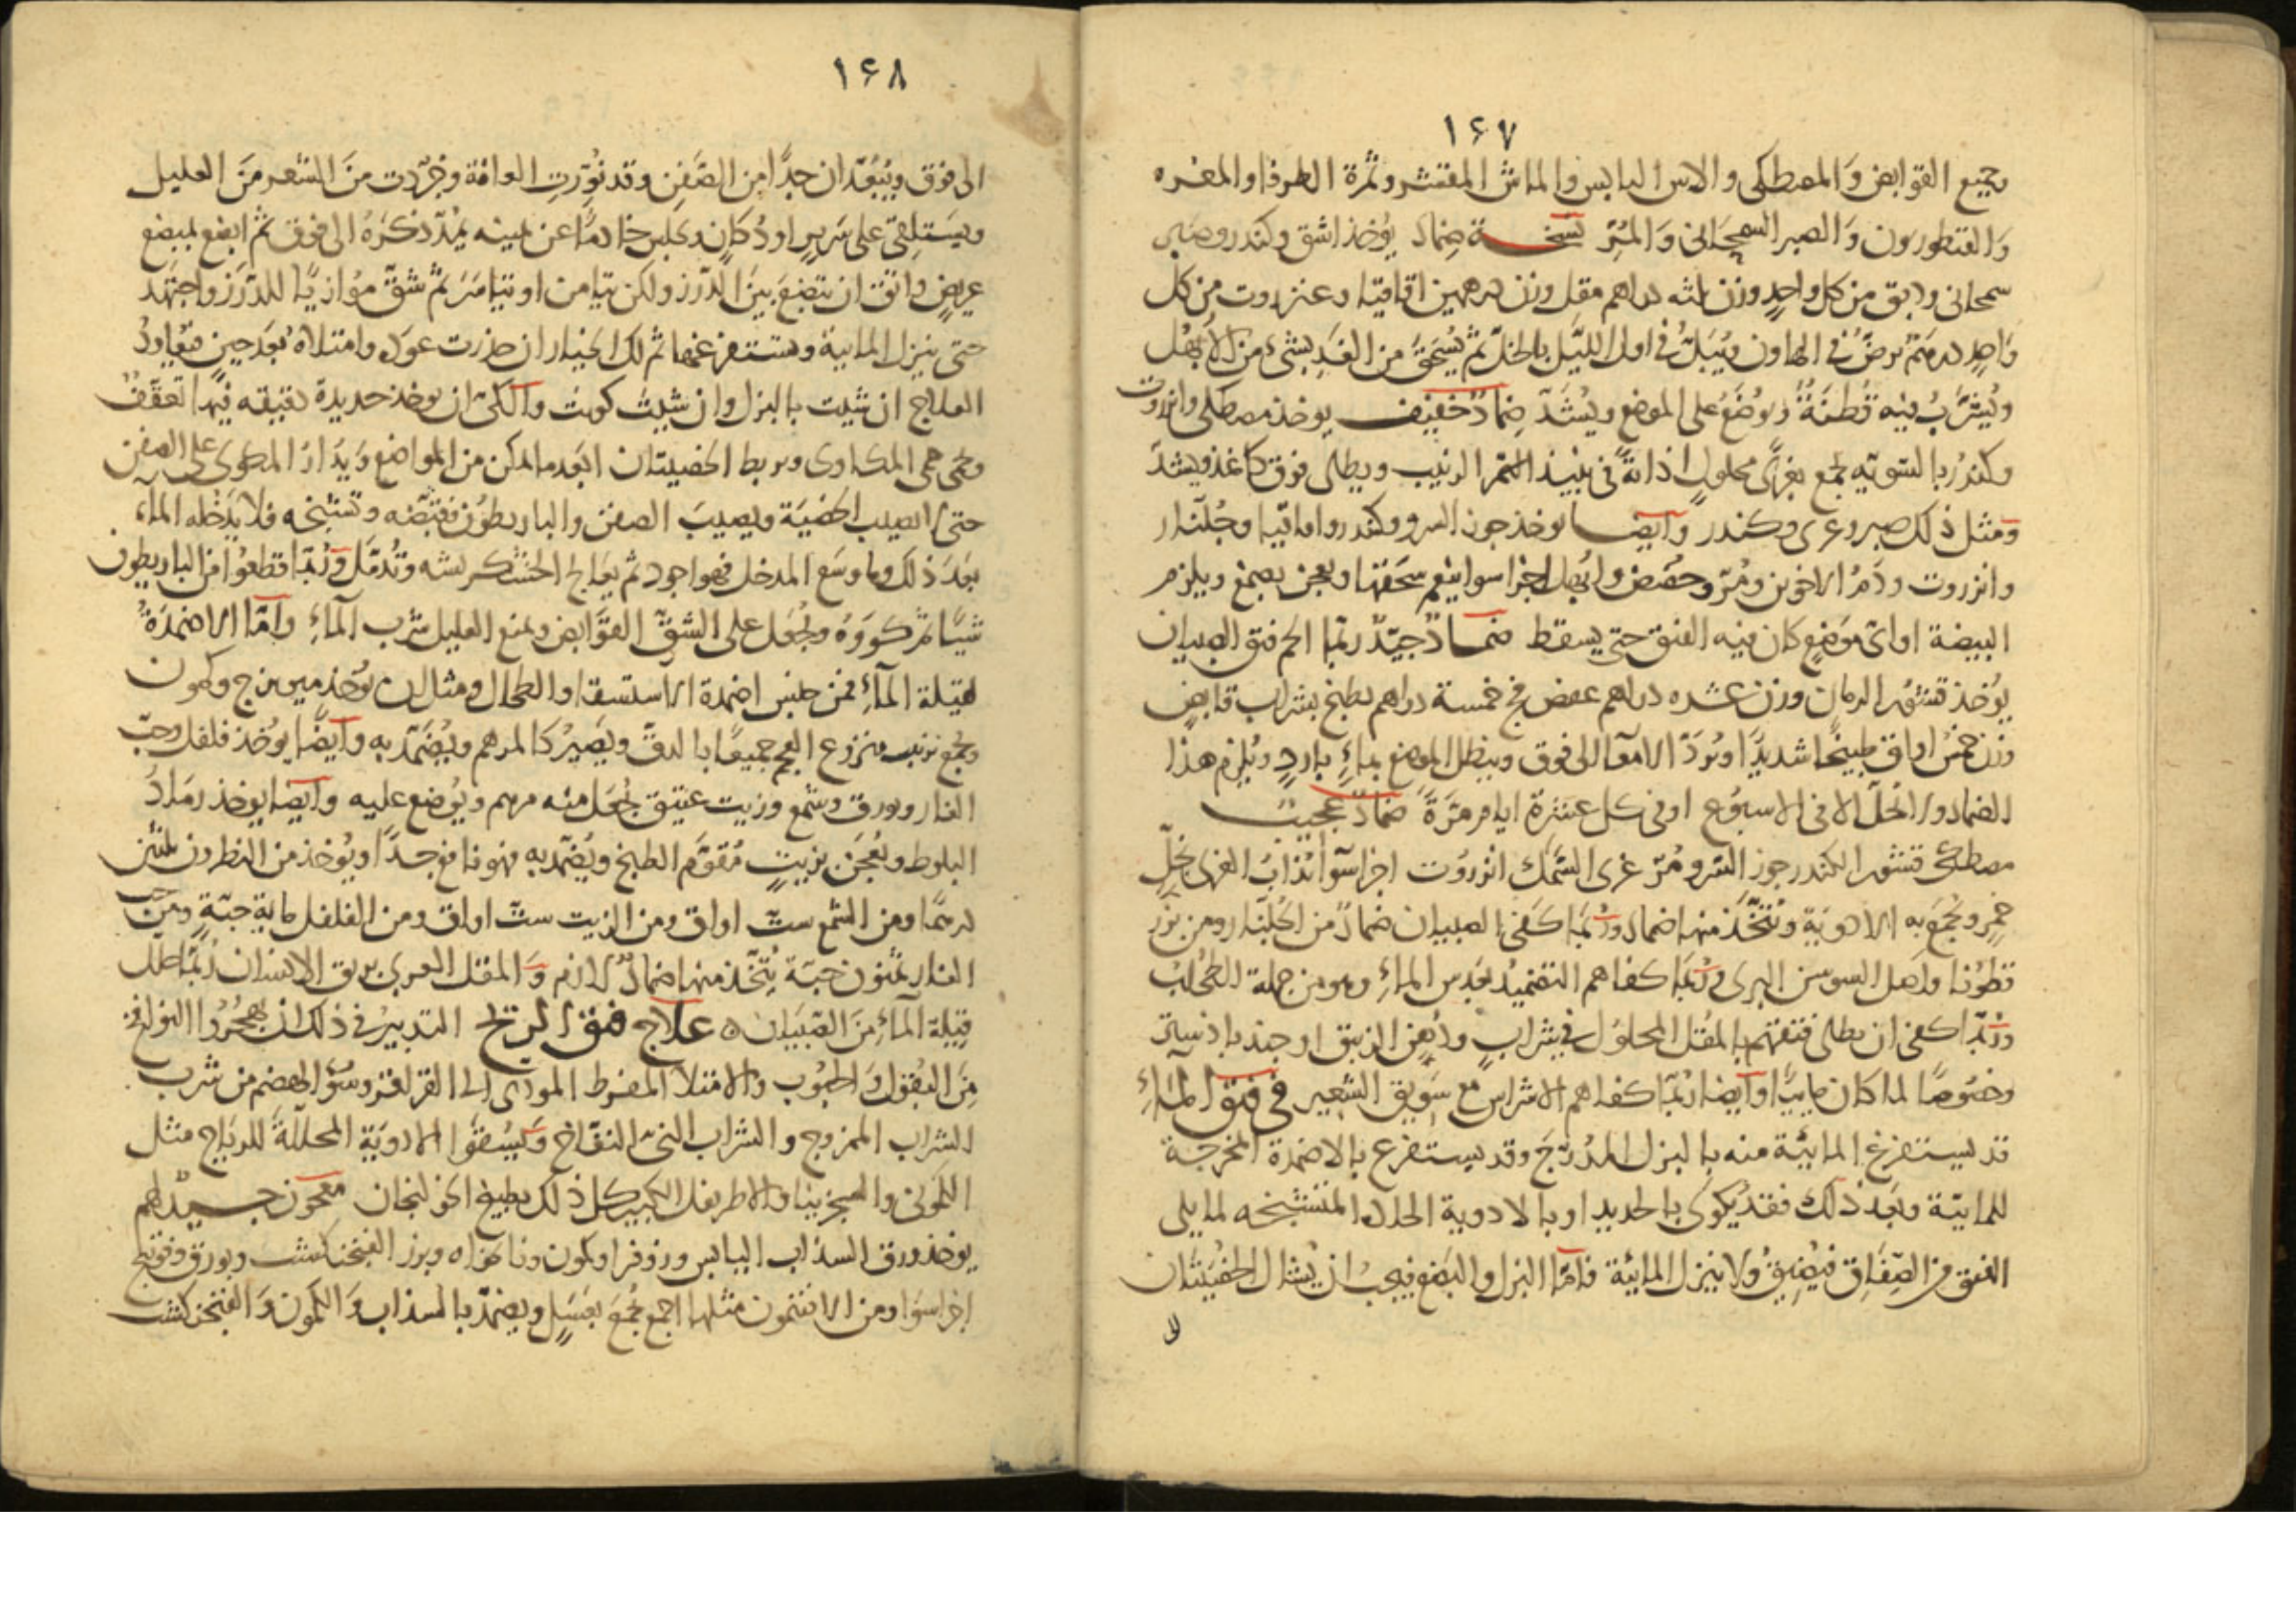 ١٦٧
وجميع القوابض وَالمصطكى والاس اليابس والماش المقشر وثمرة الطرفا والمغره
وَالقنطوريون وَالصبر السمحَانى وَالمُرّ نسخــة ضِماد يؤخذ اشق وكندر وصبر
سمحانى ودبق من كل واحدٍ وزن ثلثه دراهم مقل وزن درهمين اقاقيا وعنزروت من كل
وَاحدٍ درهم يُرضّ فى الهاون ويُبَلّ فى اول الليَّل بالخلّ ثم يُسْحَق من الغَدِ بشئ من الابهُل
ويُشَرَّبُ منِه قطنَةُ ويُوضَعُ على الموضع ويُشدّ ضِمادٌ خفيف يوخذ مصطكى وانزروت
وكندُر بالسّويّه يجمع بغِرآءٍ محلول اذابةً فى نبيذ التّمر الزبيب ويطلى فوق كاغذ ويشدّ
وَمثل ذلك صبر وغرى وكندر وَايضــا يوخذ جوز السرو وكندر واقاقيا وجُلّنار
وانزروت ودَمُ الاخوين ومُرّ وحُضَض وابُهل اجزا سوا ينعم سَحقها ويعجن بصمغ ويلزم
البيضة اواىّ مَوضِعٍ كان فيه الفتق حتى يسقط ضمــادٌ جيّدٌ ربّما الحم فتق الصبيان
يؤخذ قشور الرمان وزن عشره دراهم عفص فج خمسة دراهم يطبخ بشراب قابض
وزن خمسُ اواق طبيخًا شديدًا وتُردّ الامعآ الى فوق وينطل الموضع بماءٍ باردٍ ويُلزم هذا
الضماد ولا يُحَلّ الا فى الاسبُوع اوفى كل عشرة ايام مرّةً ضمادٌ عجيبٌ
مصطكى قشور الكندر جوز السّرو مُرّ غرى السّمك انزروت اجزا سوآ يُذابُ الغرى بخَلّ
خمرٍ ويُجمَع به الادويَة ويُتّخَذ منها ضماد ورُبّمَا كفى الصبيان ضمادٌ من الجُلّنار ومن بزر
قطُونا وَاصل السوسن البرى ورُبمَا كفاهم التضميدُ بعَدَس المآءِ وهو من جملة الطُحلب
ورُبّما كفى ان يطلى فتقهم بالمُقل المحلول فى شرابٍ ودُهن الزنبق او جند باذستر
وخصُوصًا لما كان مايىًّا وايضا رُبّما كفاهم الاشراس مع سَويق الشعير فى فتق المآءِ
قد يستفرغ المائيّة منه بالبزل المدُرّجَ وقد يستفرغ بالاضمدة المخرجة
للمائيّة وبَعدَ ذلك فقد يُكوىَ بالحديد او بالادوية الحادّه المشنّجه لما يلى
الفتق من الصّفَاق فيُضيقُ ولا ينزل المائيّة فامّا البزل والبَضع فيجبُ ان يُشال الخصُيَتَان
١٦٨
الى فوق ويُبَعّدان جدًّا من الصّفنِ وقد نُوّرتِ العانَة وجُرّدت منَ الشعر منَ العليل
ويسَتلِقى على سَريرٍ او دُكانٍ ويجلس خادمًا عن يمينه يمُدّ ذكرَهُ الى فوق ثم ابضع بمبضع
عريضٍ واتق ان تبضعَ بينَ الدّرز ولكن تيَامن او تيَاسَر ثم شقّ موُازيًا للدّرَز واجتهَد
حتى ينزل المايية ويستفرغها ثم لك الخيار ان حزرت عوَده وامتلاهُ بَعدَ حينٍ فتُعاودُ
العلاج ان شيت بالبزل وان شيت كوَيت وَالكىّ ان يوخذ حديدة دقيقه فيها تعقّفٌ
ويحمى حمى المكاوى ويربط الخصيتان ابَعد ما امكن من المواضع ويُدَارُ المكوى على الصفن
حتى لا يصيب الخصيَة ويصيبَ الصفن والباريطوُن فقبّضه وتشنّجه فلا يَدخُله المآء
بعَد ذلكَ وما وسَع المدخل فهو اجود ثم يعَالج الخشكريشه وتُدمّل وَرُبّما قطعُوا من الباريطون
شيًا ثم كووهُ ويُجعَل على الشقّ القوَّابض ويمنع العليل شربَ المآءِ وَامّا الاضمَدةُ
لقيلة المآءِ فمن جنس اضمدة الاستسقا والطحال ومثال ان يؤخذ ميويزج وكمون
ويجمع بزبيب منزوع العجم جميعًا بالدقّ ويَصيُر كالمرهم ويُضَمّدُ به وَايضًا يوُخذ فلفل وحبّ
الغار وبورق وشمع وزيت عتيق يُجعَل منه مرهم ويُوضع عليه وايضا يوخذ رمَادُ
البلوط ويُعجَن بزيتٍ مُقوّم الطبخ ويُضمّد به فهو نافع جدًا ويؤخذ من النطرون ثلثين
درهمًا ومن الشمع ستّ اواق ومن الزيت ستّ اواق ومن الفلفل ماية حبّةٍ ومن حب
الغار ثمنون حبّة يُتّخذ منها ضمادٌ لازم وَالمقل العربى بريق الانسان رُبّمَا حلل
قيلة المآءِ منَ الصّبيَان ۞ علاج فتق الريح التدبيرُ فى ذلك ان يهجُرُوا النوافخ
منَ البُقول وَالحبُوب والامتلاء المفرط المودّى الى القراقر وسُوء الهضم من شرب
الشراب الممزوج والشراب النىّ النفّاخ وَيُسقَوا الادوَية المحللةَ للريَاح مثل
الكمونى والسجزينا والاطريفل الكبير كل ذلك بطبيخ الخولنجان معجون جــيّدٌ لهم
يوخذ ورق السذاب اليابس وزوفرا وكمون ونانخواه وبزر الفنجنكشت وبورق وفوتنج
اجزا سوَا ومن الافتيمون مثلها اجمع يُجمعَ بعَسَلٍ ويضمّد بالسذاب وَالكمون وَالفنجنكشت